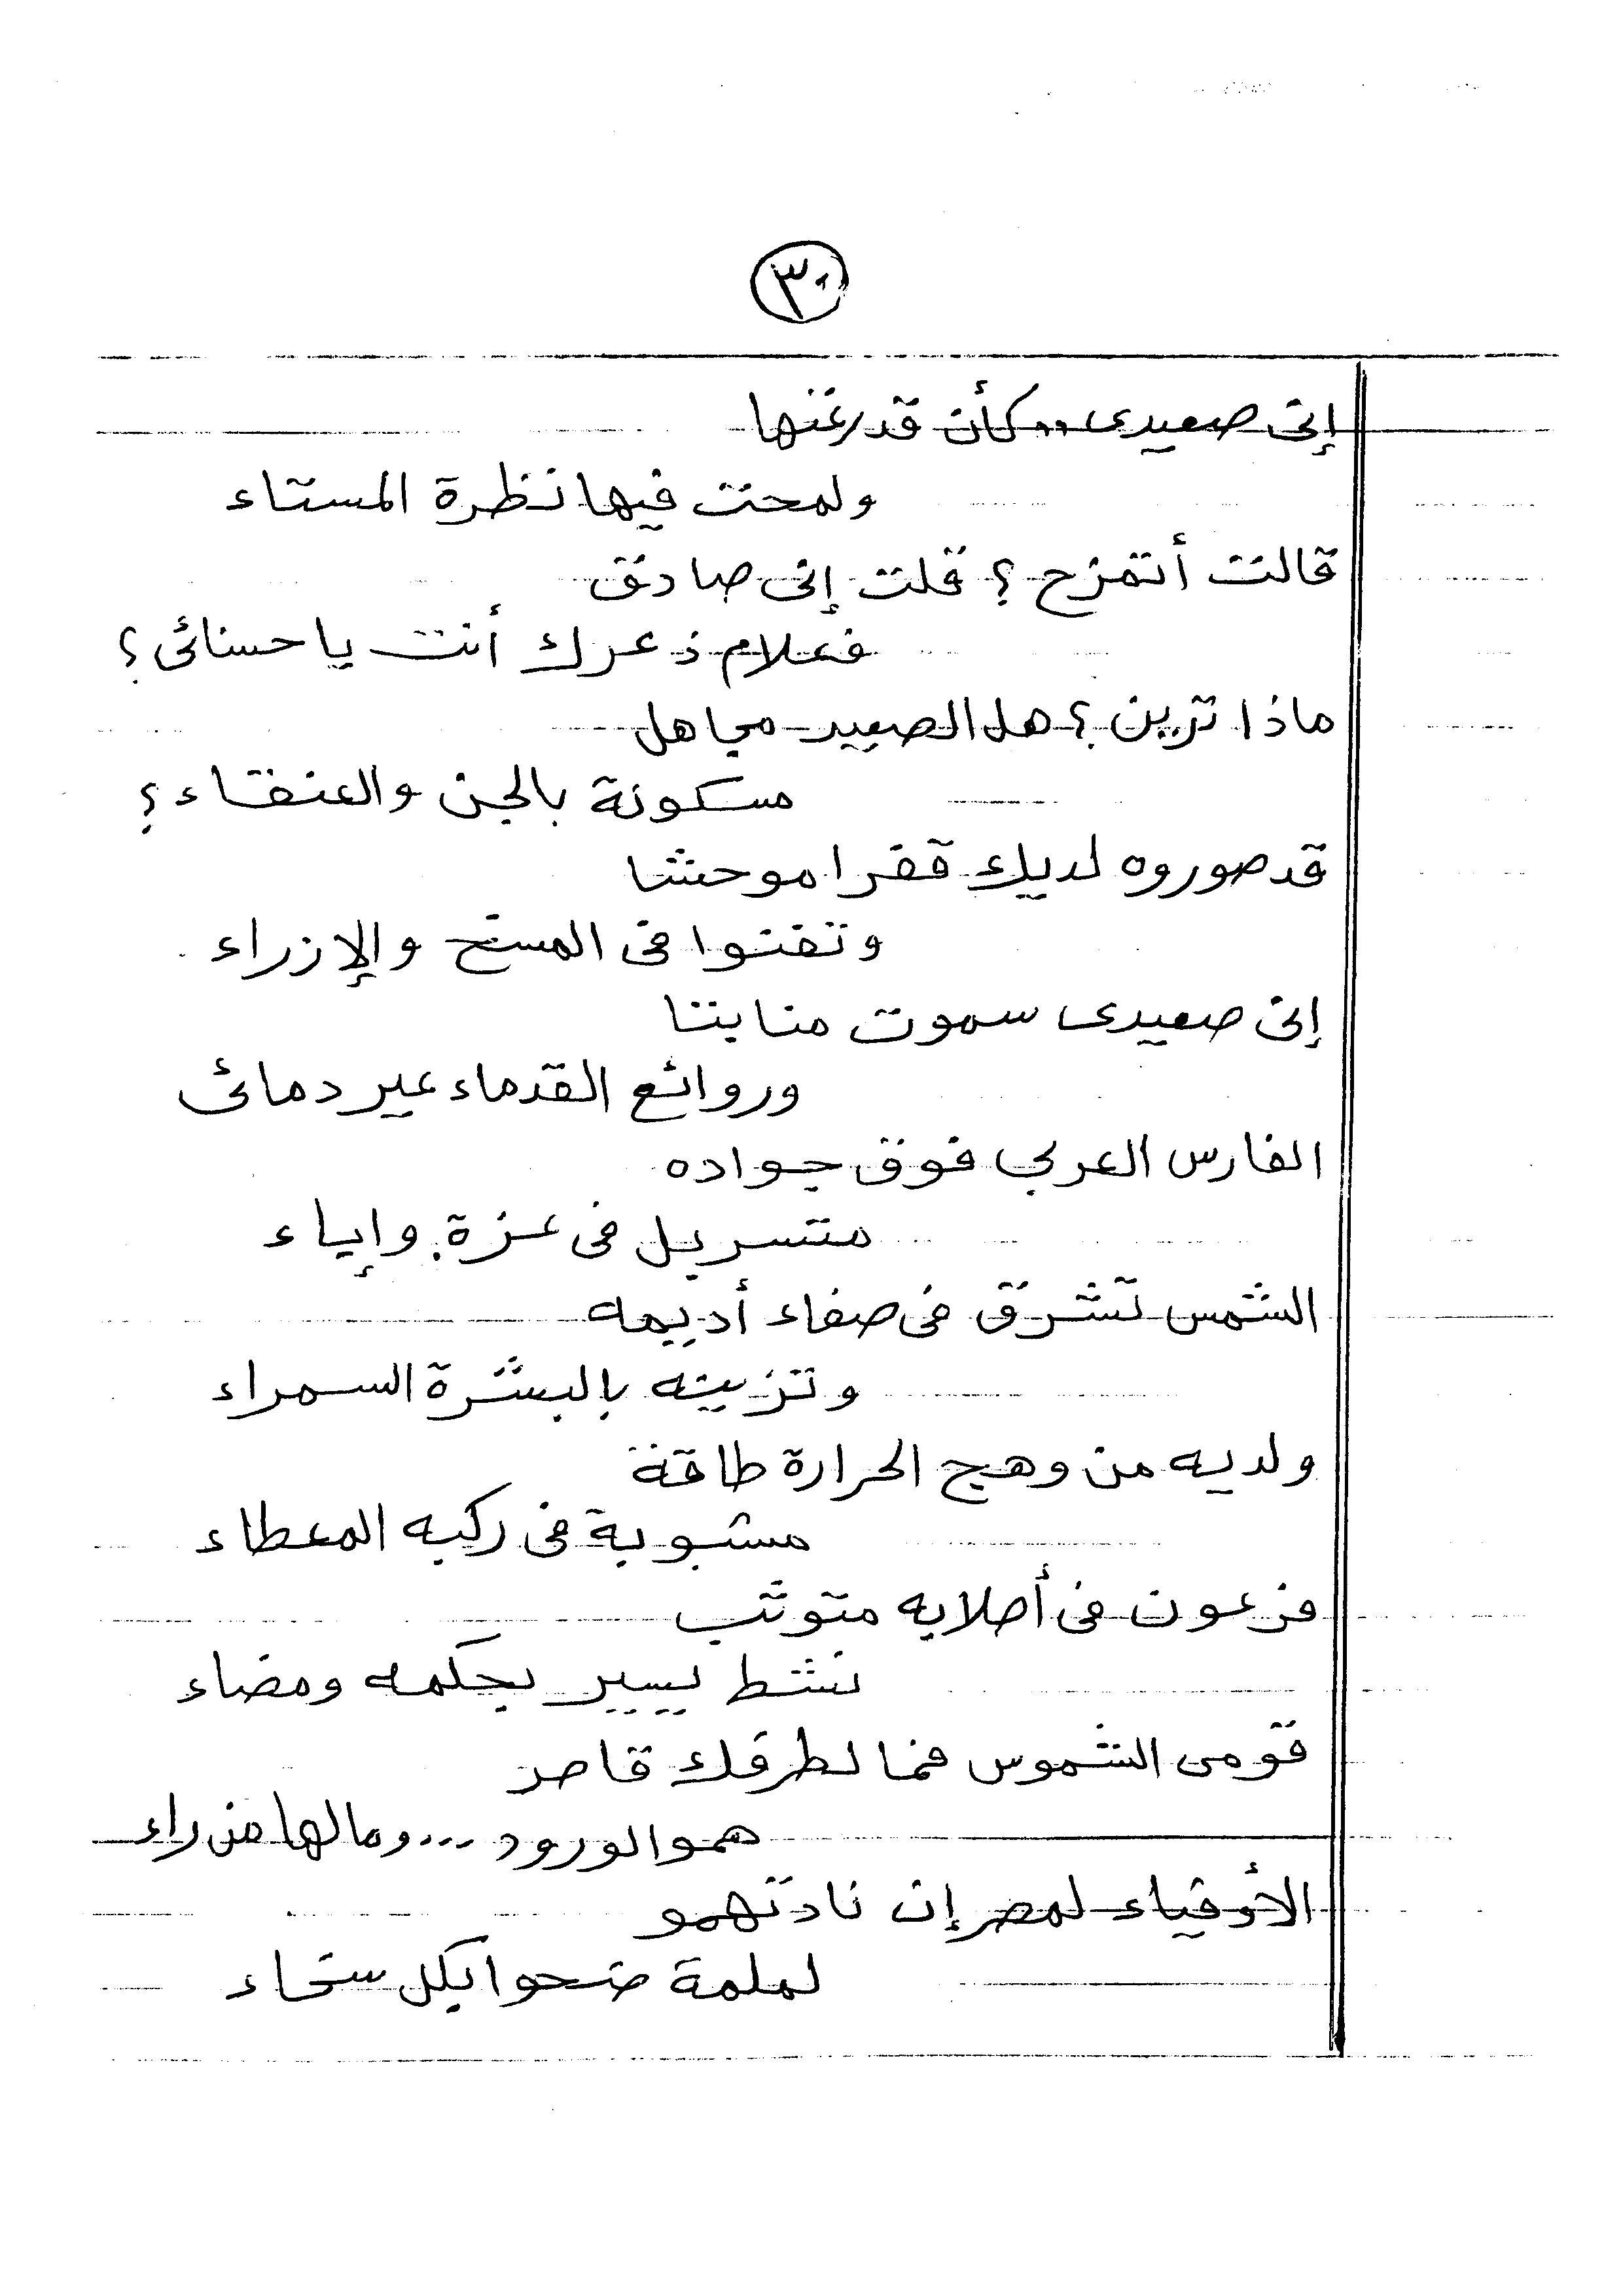 ٣٠
إنى صعيدى .. كأن قد رعتها
ولمحت فيها نظرة المستاء
قالت أتمزح ؟ قلت إنى صادق
فعلام ذعرك أنت يا حسنائى ؟
ماذا ترين ؟ هل الصعيد مجاهل
مسكونة بالجن والعنقاء ؟
قد صوروه لديك قفرا موحشا
وتفننوا فى المسخ والإزراء
إنى صعيدى سموت منابتا
وروائع القدماء عبر دمائى
الفارس العربي فوق جواده
متسربل فى عزة وإباء
الشمس تشرق فى صفاء أديمه
وتزينه بالبشرة السمراء
ولديه من وهج الحرارة طاقة
مشبوبة فى ركبه المعطاء
فرعون فى أصلابه متوثب
نشط يسير بحكمه ومضاء
قومى الشموس فما لطرفك قاصر
همو الورود ... وما لها من راء
الأوفياء لمصر إن نادتهمو
لملمة ضحوا بكل سخاء